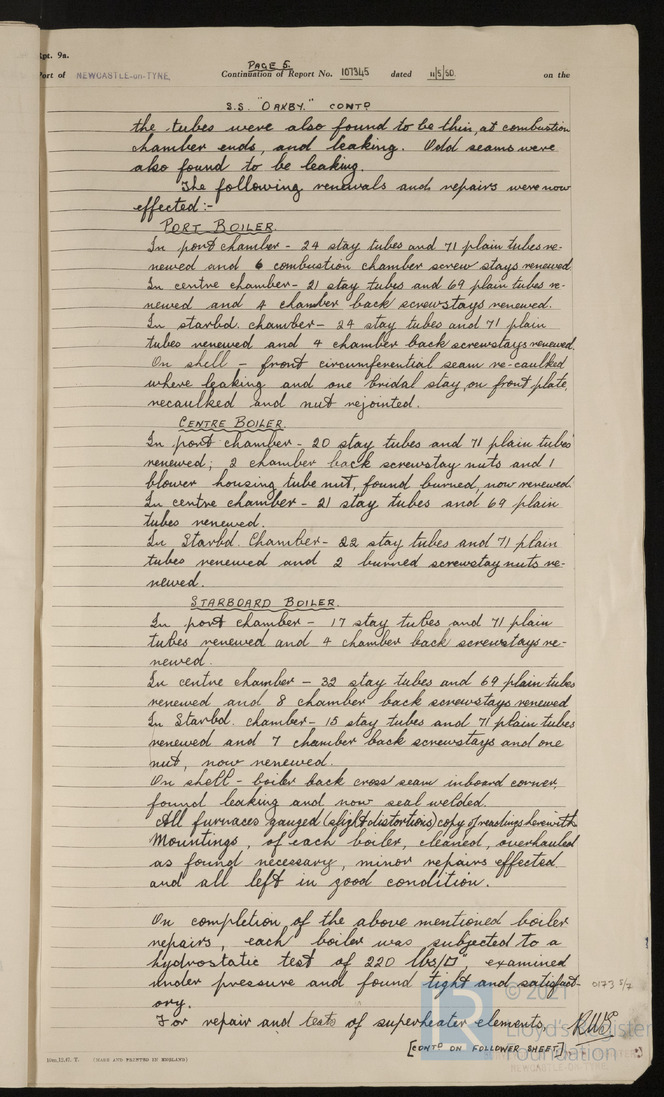 Rpt. 9a.
PAGE 5.
Port of NEWCASTLE-on-TYNE Continuation of Report No. 107345 dated 11/5/50. on the
S.S. "OAKBY." CONTD
the tubes were also found to be thin, at combustion
chamber ends, and leaking. Odd seams were
also found to be leaking.
The following renewals and repairs were now
effected:-
PORT BOILER.
In port chamber - 24 stay tubes and 71 plain tubes re-
newed and 6 combustion chamber screw stays renewed
In centre chamber - 21 stay tubes and 69 plain tubes re-
newed and 4 chamber back screwstays renewed.
In starbd. chamber - 24 stay tubes and 71 plain
tubes renewed and 4 chamber back screwstays renewed
On shell - front circumferential seam re-caulked
where leaking and one bridal stay, on front plate,
recaulked and nut rejointed.
CENTRE BOILER.
In port chamber - 20 stay tubes and 71 plain tubes
renewed; 2 chamber back screwstay nuts and 1
blower housing tube nut, found burned, now renewed.
In centre chamber - 21 stay tubes and 69 plain
tubes renewed.
In Starbd. Chamber - 22 stay tubes and 71 plain
tubes renewed and 2 burned screwstay nuts re-
newed.
STARBOARD BOILER.
In port chamber - 17 stay tubes and 71 plain
tubes renewed and 4 chamber back screwstays re-
newed.
In centre chamber - 32 stay tubes and 69 plain tubes
renewed and 8 chamber back screwstays renewed
In Starbd. chamber - 15 stay tubes and 71 plain tubes
renewed and 7 chamber back screwstays and one
nut, now renewed.
On shell - boiler back cross seam inboard corner,
found leaking and now seal welded.
All furnaces gauged (slight distortions) copy of readings herewith
Mountings, of each boiler, cleaned, overhauled
as found necessary, minor repairs effected
and all left in good condition.
On completion of the above mentioned boiler
repairs, each boiler was subjected to a
hydrostatic test of 220 lbs/□" examined
under pressure and found tight and satisfact-
ory.
0173 5/7
For repair and tests of superheater elements,
[CONTD ON FOLLOWER SHEET]
© 2021
Lloyd's Register
Foundation
NEWCASTLE-ON-TYNE
(MADE AND PRINTED IN ENGLAND)